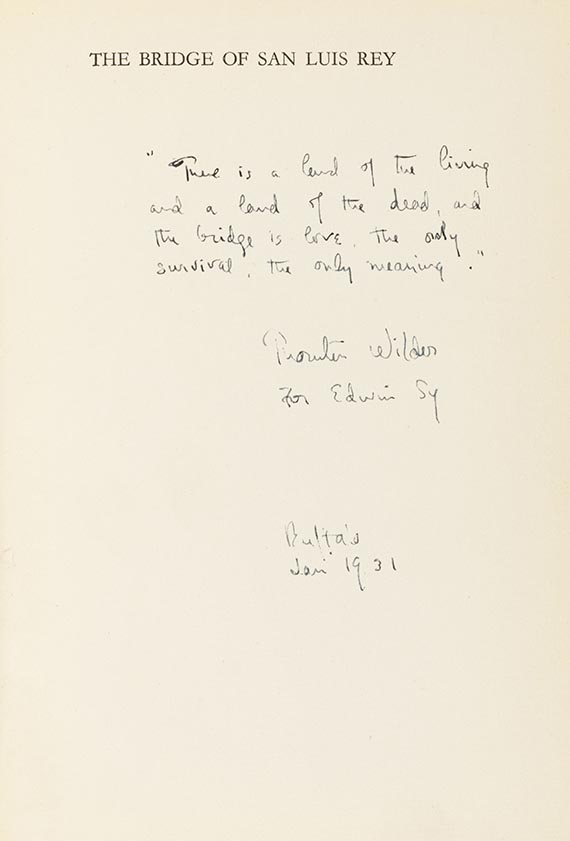 THE BRIDGE OF SAN LUIS REY
"There is a land of the living
and a land of the dead, and
the bridge is love, the only
survival, the only meaning."
Thornton Wilder
For Edwin Sy
Jan 1931